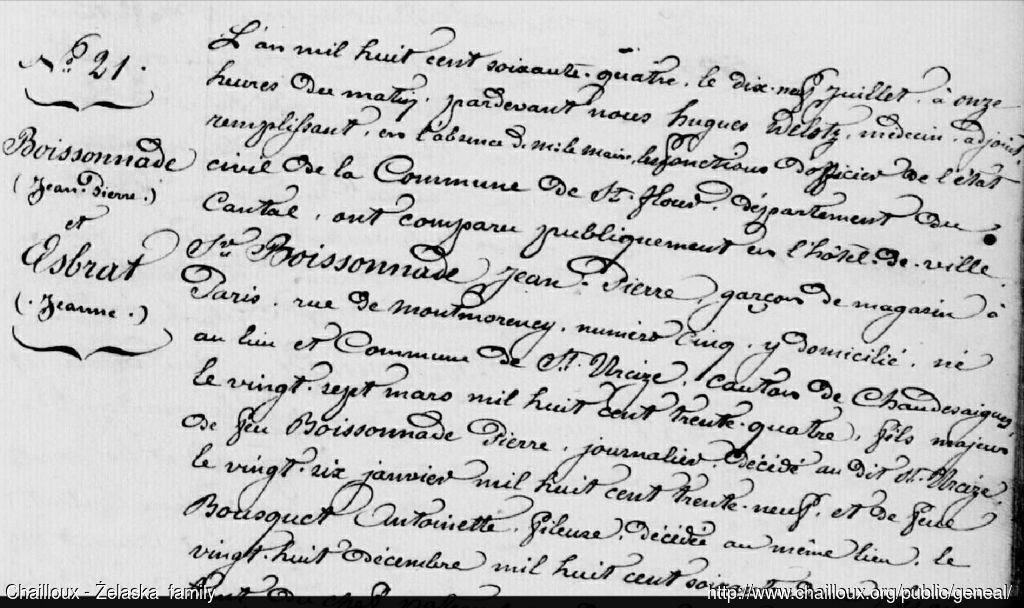 N.º 21.
Boissonnade
(Jean-Pierre.)
et
Esbrat
(Jeanne.)
L'an mil huit cent soixante-quatre, le dix-neuf Juillet, à onze
heures du matin, pardevant nous Hugues médecin, adjoint,
remplissant, en l'absence de m. le maire, les fonctions d'officier de l'état
civil de la Commune de St. flour, département du
Cantal, ont comparu publiquement en l'hôtel-de-ville
Sr. Boissonnade Jean-Pierre, garçon de magasin à
Paris, rue de montmorency, numéro cinq, y domicilié, né
au lieu et Commune de St. Urcize, canton de Chaudesaigues,
le vingt-sept mars mil huit cent trente-quatre, fils majeur
de feu Boissonnade Pierre, journalier, décédé au dit St. Urcize,
le vingt-six janvier mil huit cent trente-neuf, et de feue
Bousquet Antoinette, fileuse, décédée au même lieu, le
vingt-huit décembre mil huit cent
Chailloux - Želaska family
http://www.chailloux.org/public/geneal/